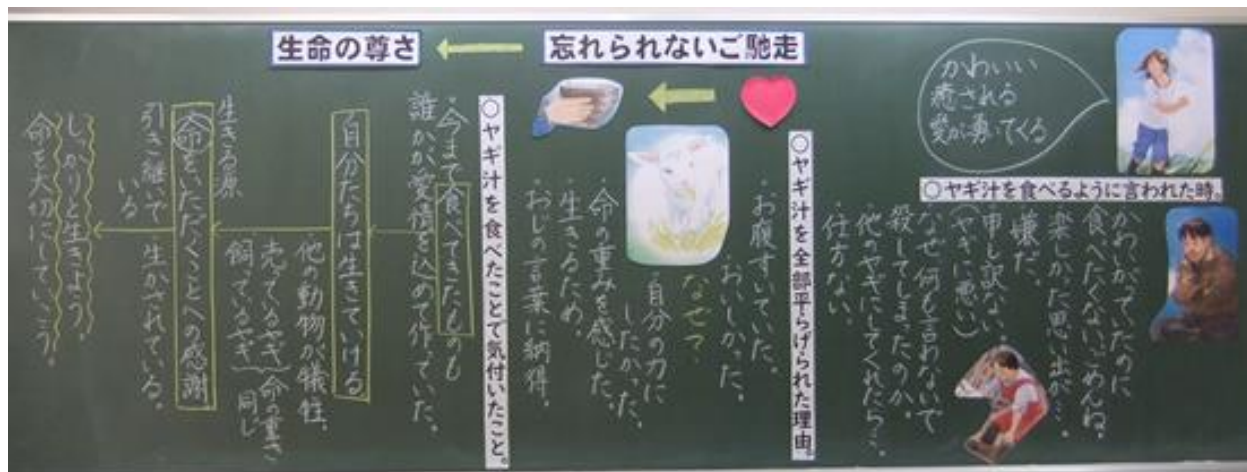 忘れられないご馳走
生命の尊さ
かわいい
癒される
愛が湧いてくる
○ヤギ汁を食べるように言われた時。
かわいがっていたのに
食べたくない。ごめんね。
楽しかった思い出が…。
嫌だ。
申し訳ない。
(ヤギに悪い)
なぜ、何も言わないで
殺してしまったのか。
他のヤギにしてくれたら…。
仕方ない。
○ヤギ汁を全部平らげられた理由。
・お腹すいていた。
・おいしかった。
なぜ?
・自分の力に
したかった。
・命の重みを感じた。
・生きるため。
・おじの言葉に納得。
○ヤギ汁を食べたことで気付いたこと。
・今まで食べてきたものも
誰かが愛情を込めて作っていた。
自分たちは生きていける
他の動物が犠牲。
売ってるヤギ
飼ってるヤギ
命の重さ
同じ
生きる源
命をいただくことへの感謝
引き継いで生かされている。
いる
しっかりと生きよう。
命を大切にしていこう。